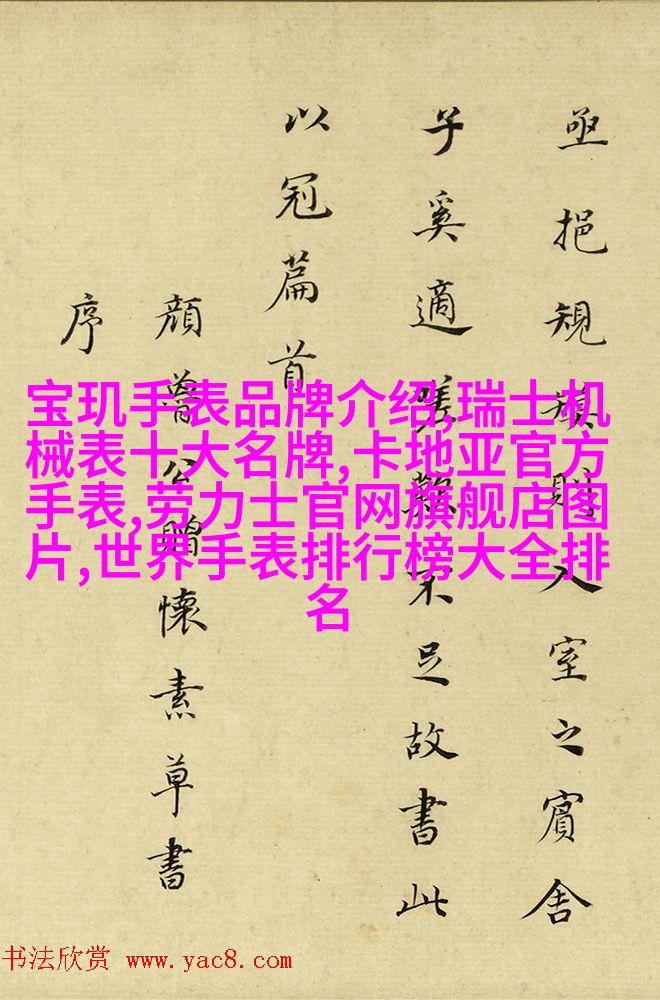 亟挹規模則入室之賓舍
子奚適嗟歎不足故書此
以冠篇首
顔魯公贈懷素草書
序
宝玑手表品牌介绍,瑞士机
械表十大名牌,卡地亚官方
手表,劳力士官网旗舰店图
片,世界手表排行榜大全排
名
书法欣赏 www.yac8.com